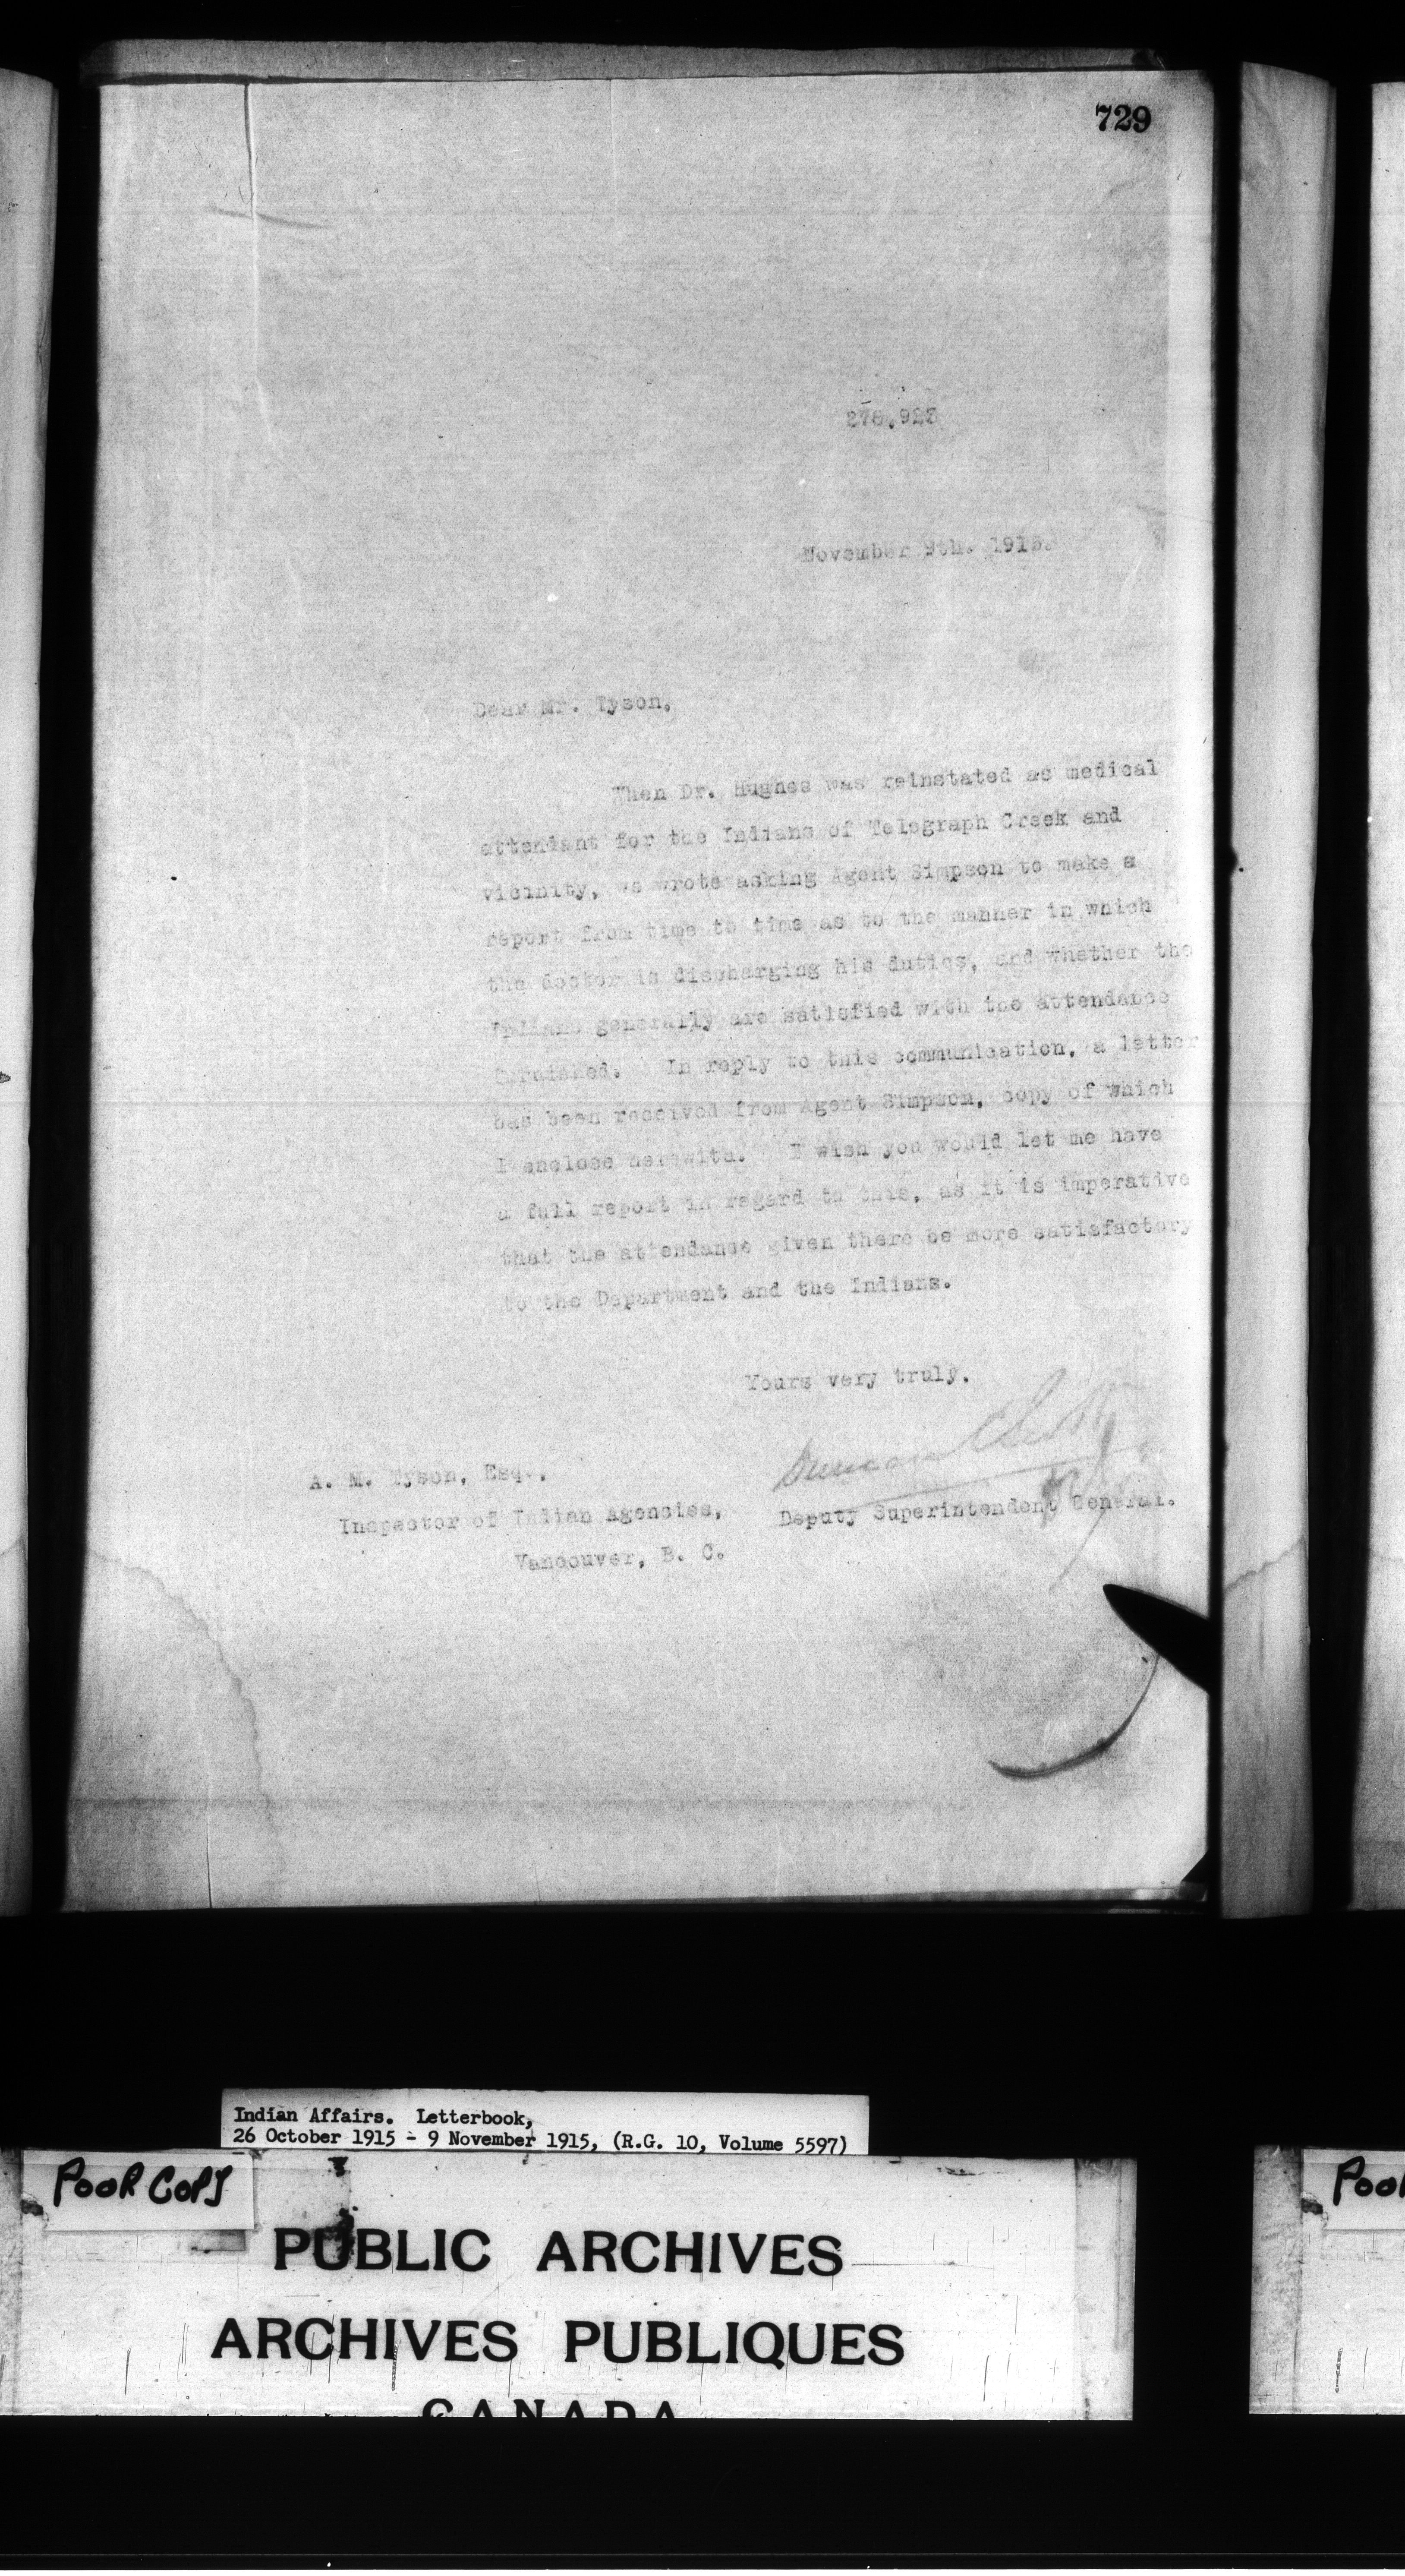 729
November 9th. 1915.
Dear Mr. Tyson,
When Dr. Hughes was reinstated as medical
attendant for the Indians of Telegraph Creek and
vicinity, we wrote asking Agent Simpson to make a
report from time to time as to the manner in which
the doctor is discharging his duties, and whether the
Indians generally are satisfied with the attendance
furnished. In reply to this communication, a letter
has been received from Agent Simpson, copy of which
I enclose herewith. I wish you would let me have
a full report in regard to this, as it is imperative
that the attendance given there be more satisfactory
to the Department and the Indians.
Yours very truly,
Duncan C Scott
A. M. Tyson, Esq.,
Deputy Superintendent General.
Inspector of Indian Agencies,
Vancouver, B. C.
Indian Affairs. Letterbook,
26 October 1915 - 9 November 1915, (R.G. 10, Volume 5597)
POOR COPY
PUBLIC ARCHIVES
ARCHIVES PUBLIQUES
CANADA